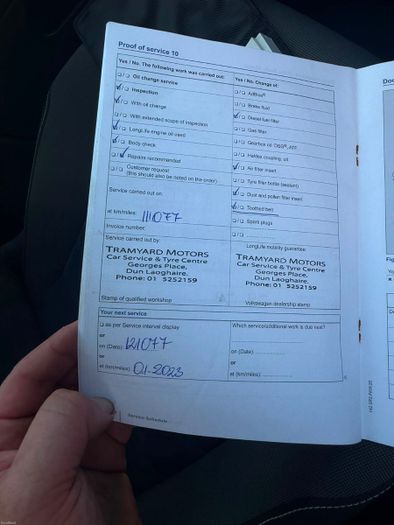 Proof of service 10
Yes / No. The following work was carried out:
Oil change service
Inspection
With oil change
With extended scope of inspection
LongLife engine oil used
Body check
Repairs recommended
Customer request
(this should also be noted on the order)
Service carried out on:
at km/miles: 111077
Invoice number:
Service carried out by:
TRAMYARD MOTORS
Car Service & Tyre Centre
Georges Place,
Dun Laoghaire.
Phone: 01 5252159
Stamp of qualified workshop
Yes / No. Change of:
AdBlue®
Brake fluid
Diesel fuel filter
Gas filter
Gearbox oil DSG®, ATF
Haldex coupling oil
Air filter insert
Tyre filler bottle (sealant)
Dust and pollen filter insert
Toothed belt
Spark plugs
LongLife mobility guarantee:
TRAMYARD MOTORS
Car Service & Tyre Centre
Georges Place,
Dun Laoghaire.
Phone: 01 5252159
Volkswagen dealership stamp
Your next service
as per Service interval display
or
on (Date): 121077
or
at (km/miles): 01-2023
Which service/additional work is due next?
on (Date):
or
at (km/miles):
Service Schedule